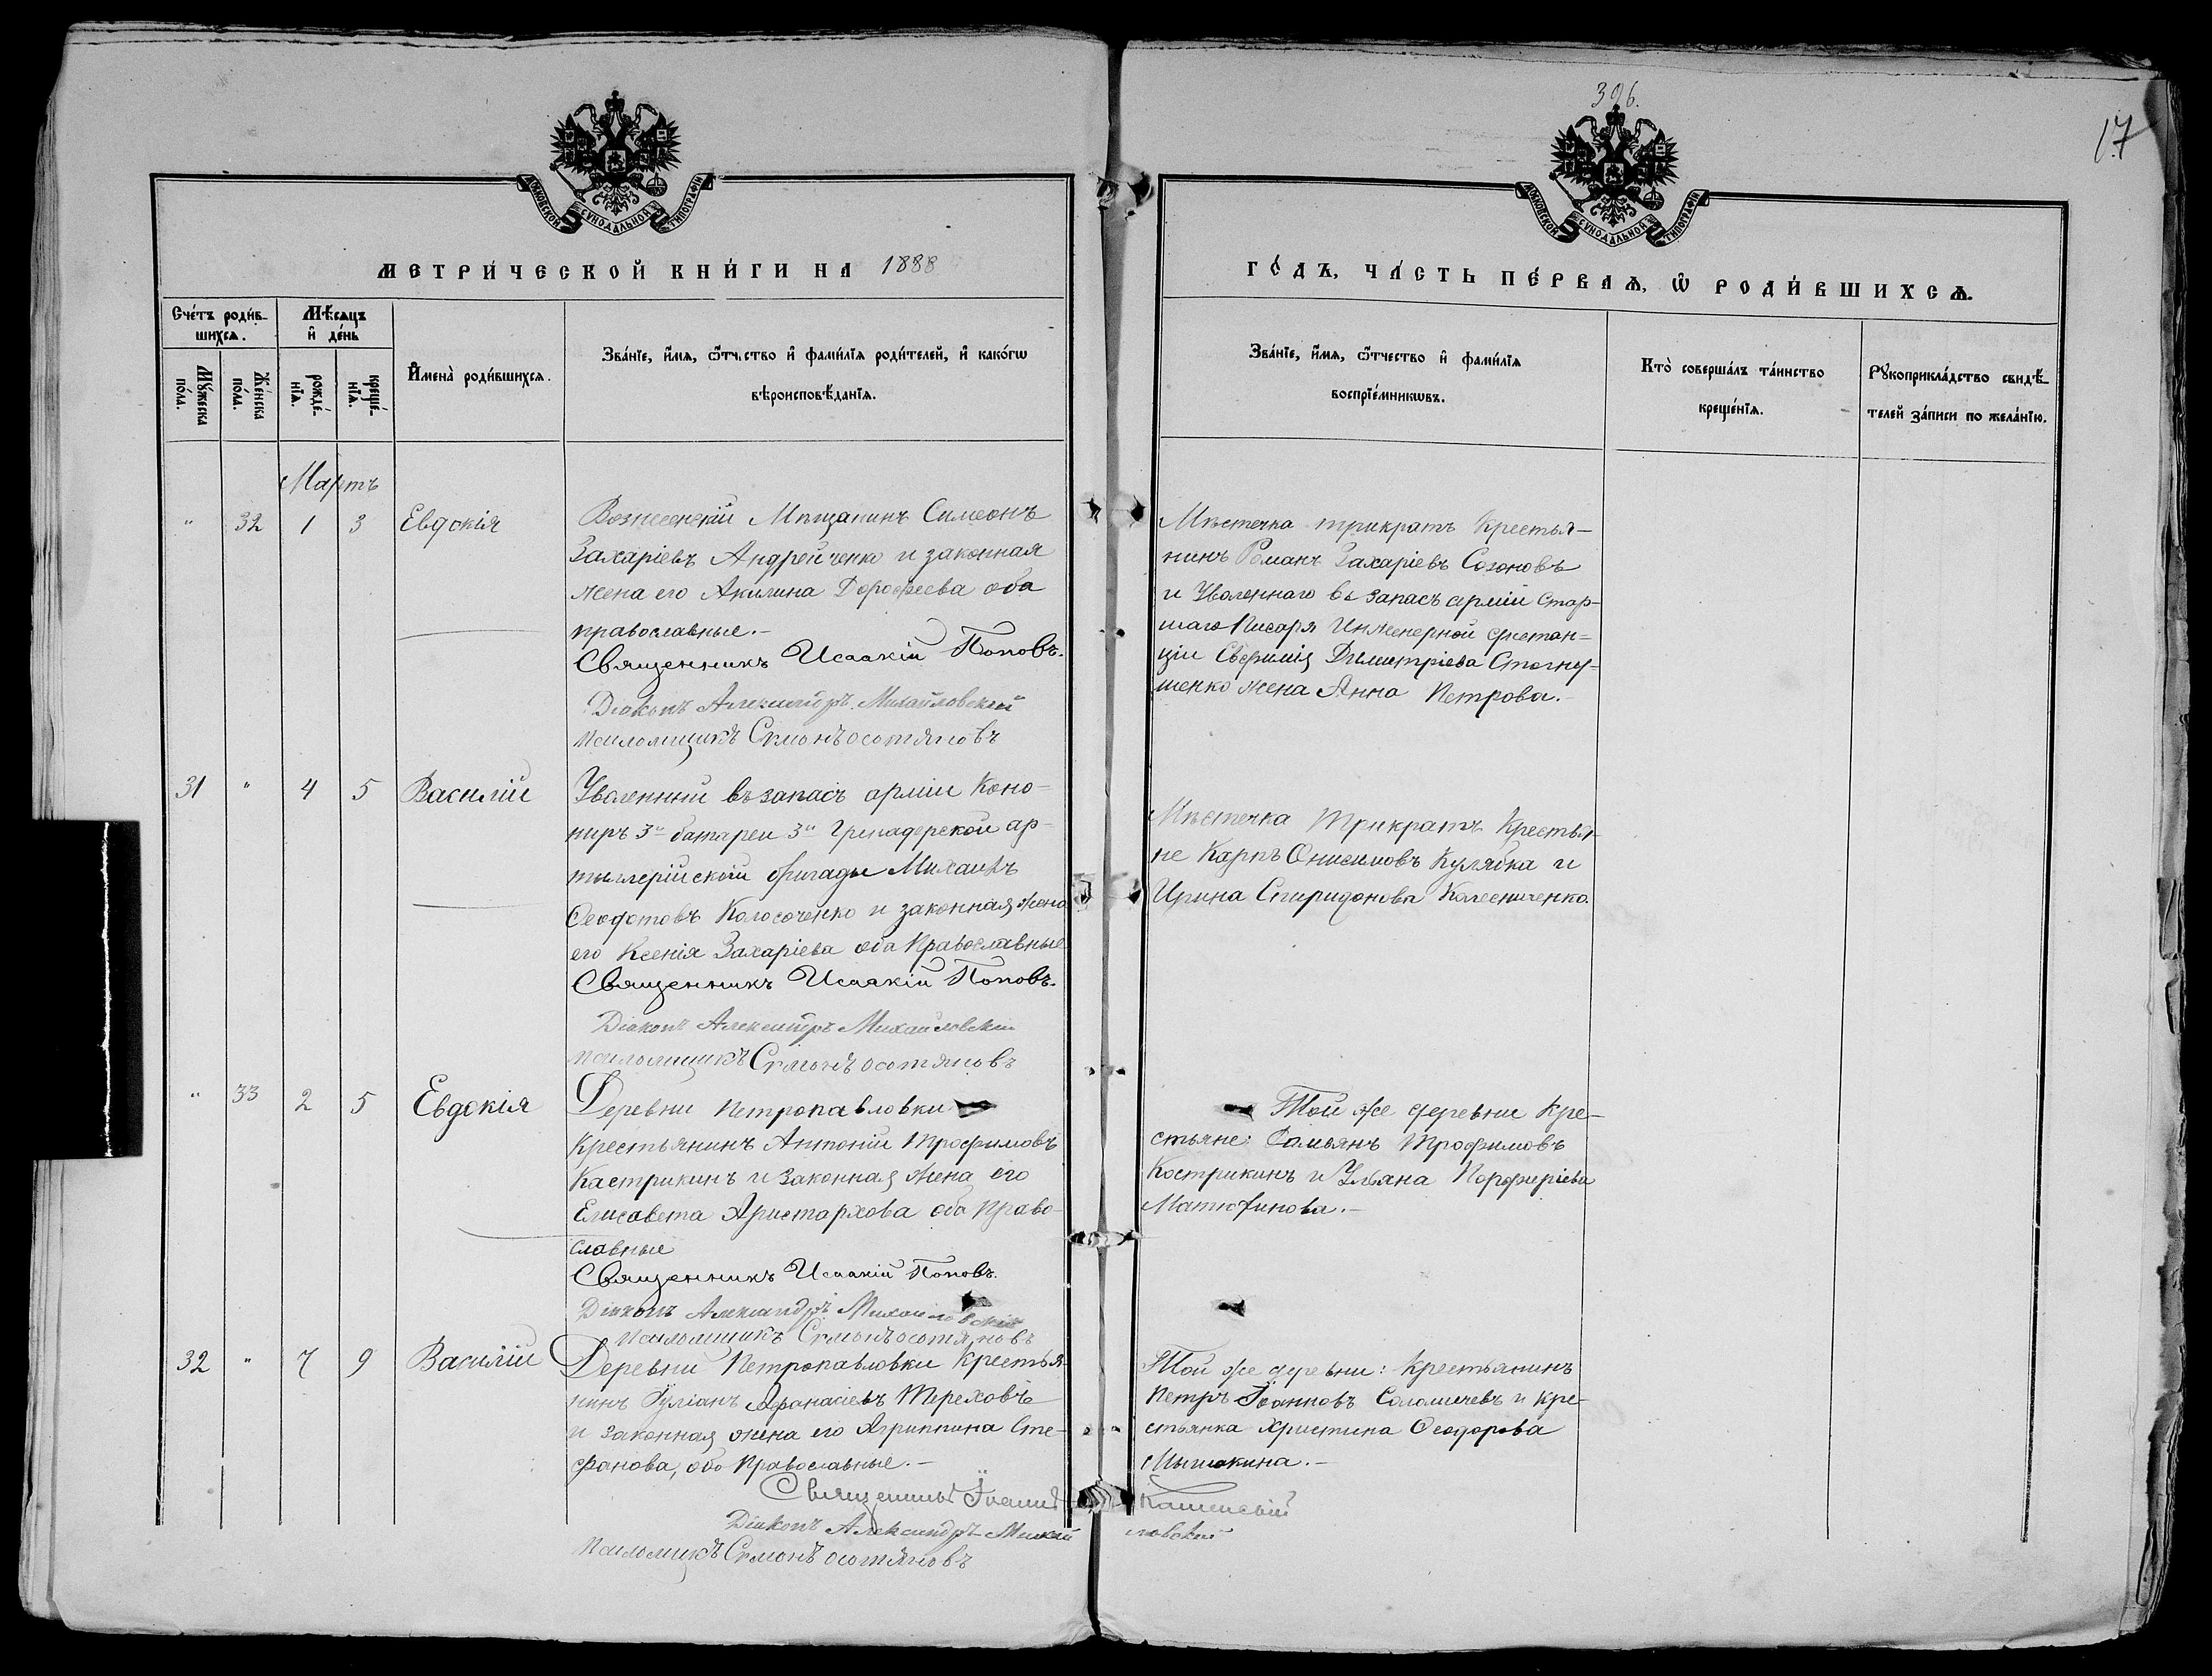 396.
17
МОСКОВСКОЙ СѴНОДАЛЬНОЙ ТИПОГРАФІИ
МОСКОВСКОЙ СѴНОДАЛЬНОЙ ТИПОГРАФІИ
МЕТРИ́ЧЕСКОЙ КНИ́ГИ НА 1888
ГО́ДЪ, ЧА́СТЬ ПЕ́РВАѦ, Ѽ РОДИ́ВШИХСѦ.
Сче́тъ роди́в-
шихсѧ.
Мѣ́сѧцъ
и҆ де́нь
Мꙋ́жеска
по́ла.
Же́нска
по́ла.
рожде́-
нїѧ.
креще́-
нїѧ.
И҆мена̀ роди́вшихсѧ.
Зва́нїе, и҆́мѧ, ѻ҆́тчество и҆ фами́лїѧ роди́телей, и҆ како́гѡ
вѣроисповѣ́данїѧ.
Зва́нїе, и҆́мѧ, ѻ҆́тчество и҆ фами́лїѧ
воспрїе́мникѡвъ.
Кто̀ соверша́лъ та́инство
креще́нїѧ.
Рꙋкоприкла́дство свидѣ́-
телей за́писи по жела́нїю.
Мартъ
" 32 1 3 Евдокія
Вознесенскій Мѣщанинъ Симеонъ
Захаріевъ Андрейченко и законная
жена его Акилина Дорофеева оба
православные.-
Священникъ Исаакій Поповъ.
Діаконъ Александръ Михайловскій
Псаломщикъ
Мѣстечка трикратъ Крестья-
нинъ Романъ Захаріевъ Созоновъ
и Уволеннаго въ запасъ арміи Стар-
шаго Писаря Инженерной дистан-
ціи Евфимія Димитріева
жена Анна Петрова.-
31 " 4 5 Василій
Уволенный въ запасъ арміи Коно-
ниръ 3й батареи 3й Гренадерской ар-
тиллерійской бригады Михаилъ
Ѳеодотовъ Колосоченко и законная жена
его Ксенія Захаріева оба Православные
Священникъ Исаакій Поповъ.
Діаконъ Александръ Михайловскій
Псаломщикъ
Мѣстечка Трикратъ Крестья-
не Карпъ Онисимовъ Кулябка и
Ирина Спиридонова Колесниченко.
" 33 2 5 Евдокія
Деревни Петропавловки
Крестьянинъ Антоній Трофимовъ
Кастрикинъ и законная жена его
Елисавета Аристархова оба Право-
славные
Священникъ Исаакій Поповъ.
Діаконъ Александръ Михайловскій
Псаломщикъ
Той же деревни Кре-
стьяне: Самьянъ Трофимовъ
Кострикинъ и Ульяна Порфиріева
32 " 7 9 Василій
Деревни Петропавловки Крестья-
нинъ Іуліанъ Афанасіевъ Тереховъ
и законная жена его Агриппина Сте-
фанова, оба Православные.-
Священникъ Іоаннъ Каменскій
Діаконъ Александръ Михайловскій
Псаломщикъ
Той же деревни: Крестьянинъ
Петръ Іоанновъ и Кре-
стьянка Христина Ѳеодорова